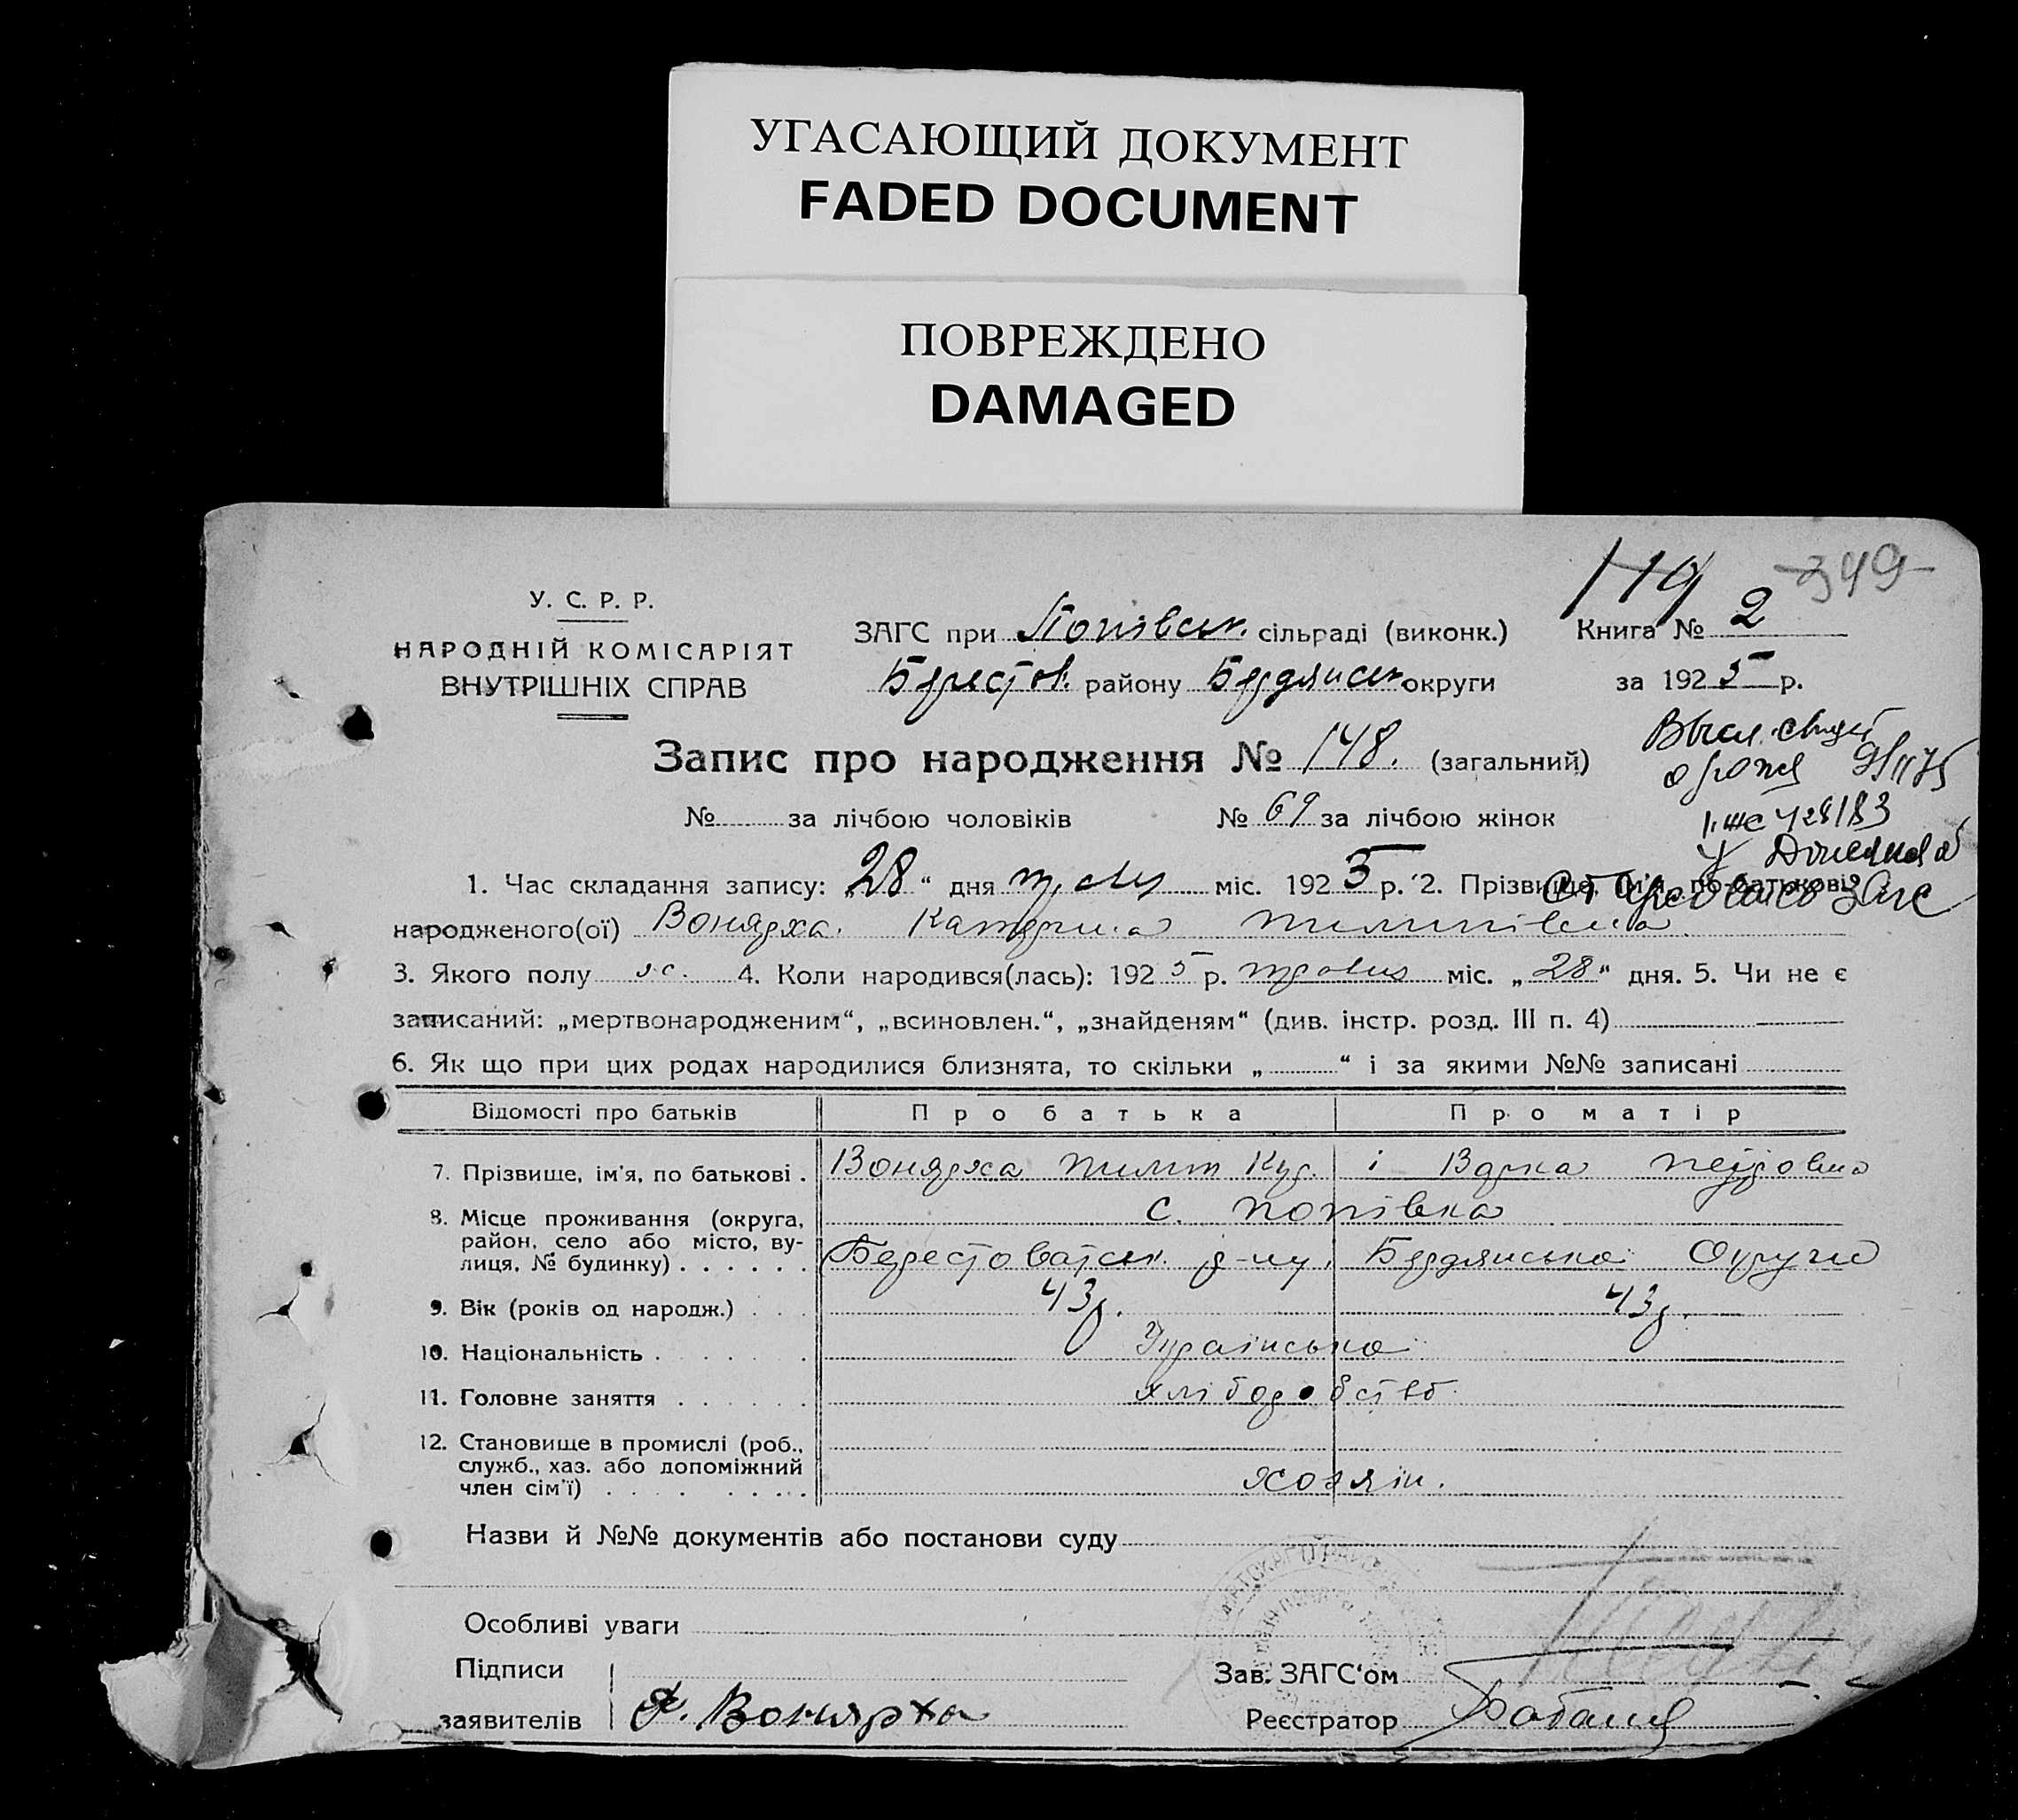 УГАСАЮЩИЙ ДОКУМЕНТ
FADED DOCUMENT
ПОВРЕЖДЕНО
DAMAGED
119 2 349
У. С. Р. Р.
НАРОДНІЙ КОМІСАРІЯТ
ВНУТРІШНІХ СПРАВ
ЗАГС при Попівськ. сільраді (виконк.) Книга № 2
Берестов. району Бердянськ округи за 1925 р.
Запис про народження № 148. (загальний)
№ за лічбою чоловіків № 69 за лічбою жінок
1. Час складання запису: „28“ дня травня міс. 1925 р. 2. Прізвище, ім'я, по батькові
народженого(ої) Вонярха Катерина Пилипівна
3. Якого полу ж. 4. Коли народився(лась): 1925 р. травня міс. „28“ дня. 5. Чи не є
записаний: „мертвонародженим“, „всиновлен.“, „знайденям“ (див. інстр. розд. III п. 4)
6. Як що при цих родах народилися близнята, то скільки „ “ і за якими №№ записані
Відомості про батьків Про батька Про матір
7. Прізвище, ім'я, по батькові . Вонярха Пилип і Варка
8. Місце проживання (округа, с. Попівка
район, село або місто, ву-
лиця, № будинку) . . . . . . Берестоватськ. р-ну, Бердянської Округи
9. Вік (років од народж.) . . . 43р. 43р.
10. Національність . . . . . . . Українська
11. Головне заняття . . . . . . хліборобство
12. Становище в промислі (роб.,
служб., хаз. або допоміжний
член сім'ї) . . . . . . . . хозяїн.
Назви й №№ документів або постанови суду
Особливі уваги
Підписи Зав. ЗАГС'ом
заявителів Вонярха Реєстратор